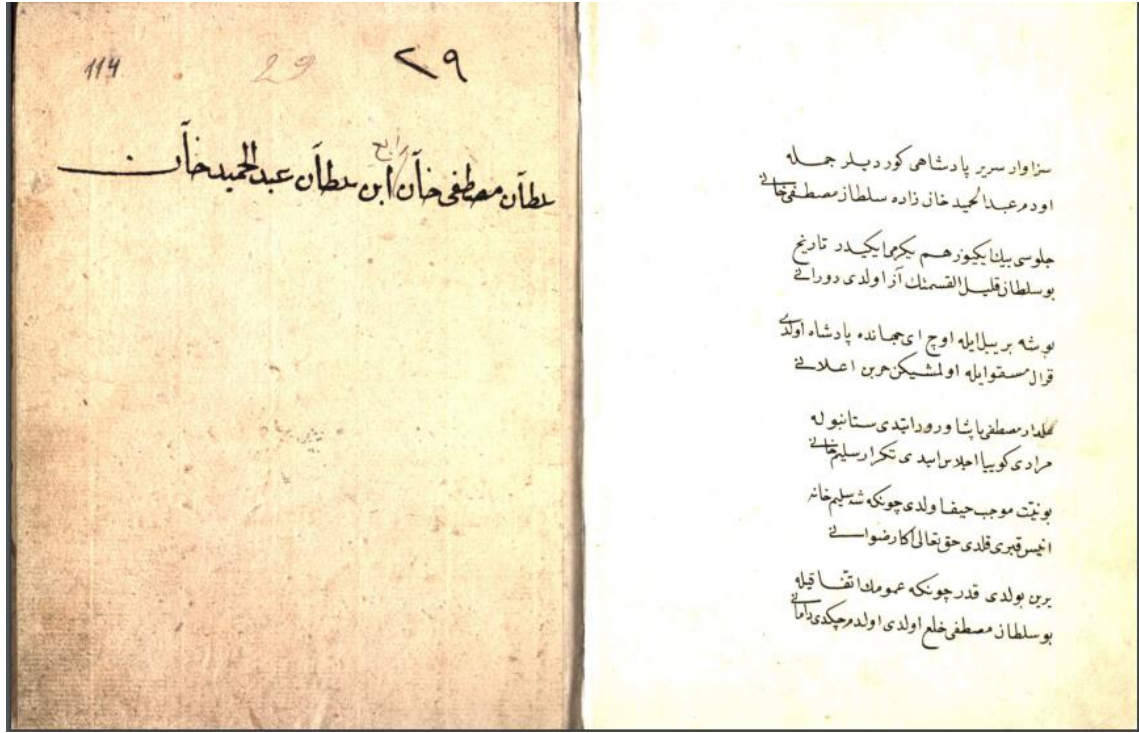 114 29 ٢٩
رابع
سلطان مصطفى خان ابن سلطان عبدالحميد خان
سزاوار سرير پادشاهى كورديلر جمله
اودم عبدالحميد خان زاده سلطان مصطفى خانى
جلوسى بيك ايكيوز هم يكرمى ايكيدر تاريخ
بو سلطان قليل القسمتك آز اولدى دورانى
بو شه بر ييل ايله اوچ اى جهانده پادشاه اولدى
قرال مسقو ايله اولمشيكن حربن اعلانى
علمدار مصطفى پاشا ورود ايتدى ستانبوله
مرادى كوييا اجلاس ايدى تكرار سليم خانى
بو نيت موجب حيفا ولدى چونكه شه سليم خانه
انيس قبرى قلدى حق تعالى اكا رضوانى
يرين بولدى قدر چونكه عمومك اتفاقيله
بو سلطان مصطفى خلع اولدى اولدم چكدى دامانى